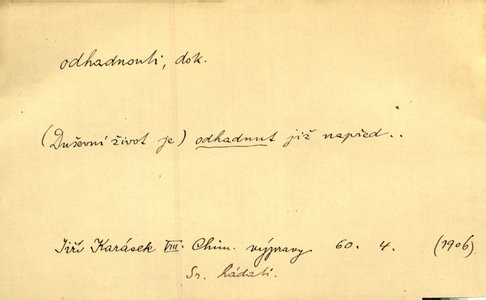 odhadnouti, dok.
(Duševní život je) odhadnut již napřed..
Jiří Karásek VIII. Chim. výpravy 60. 4. (1906)
Sr. hádati.